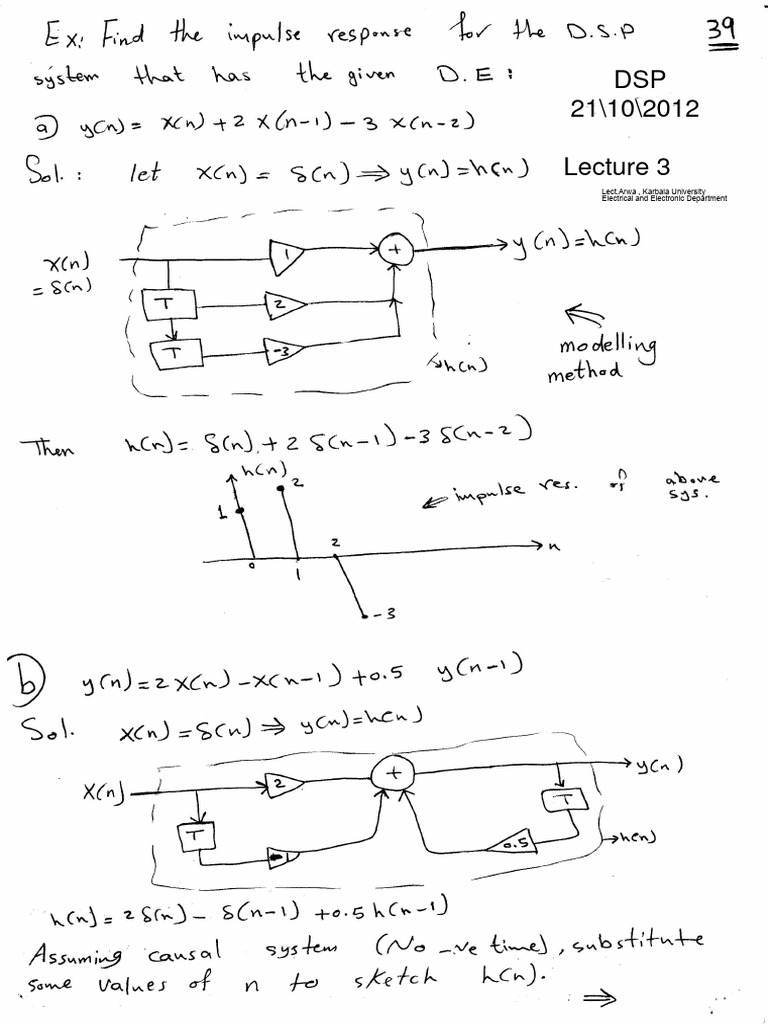 Ex: Find the impulse response for the D.S.P 39
system that has the given D.E:
DSP
21\10\2012
a) y(n) = x(n) + 2 x(n-1) - 3 x(n-2)
Sol.: let x(n) = δ(n) ⇒ y(n) = h(n)
Lecture 3
Lect.Arwa , Karbala University
Electrical and Electronic Department
x(n)
= δ(n)
1
+
y(n) = h(n)
T
2
T
-3
h(n)
modelling
method
Then h(n) = δ(n) + 2 δ(n-1) - 3 δ(n-2)
h(n)
1
2
impulse res. of above
sys.
0
1
2
n
-3
b) y(n) = 2 x(n) - x(n-1) + 0.5 y(n-1)
Sol. x(n) = δ(n) ⇒ y(n) = h(n)
x(n)
2
+
y(n)
T
T
-1
0.5
h(n)
h(n) = 2δ(n) - δ(n-1) + 0.5 h(n-1)
Assuming causal system (No -ve time), substitute
some values of n to sketch h(n).
⇒